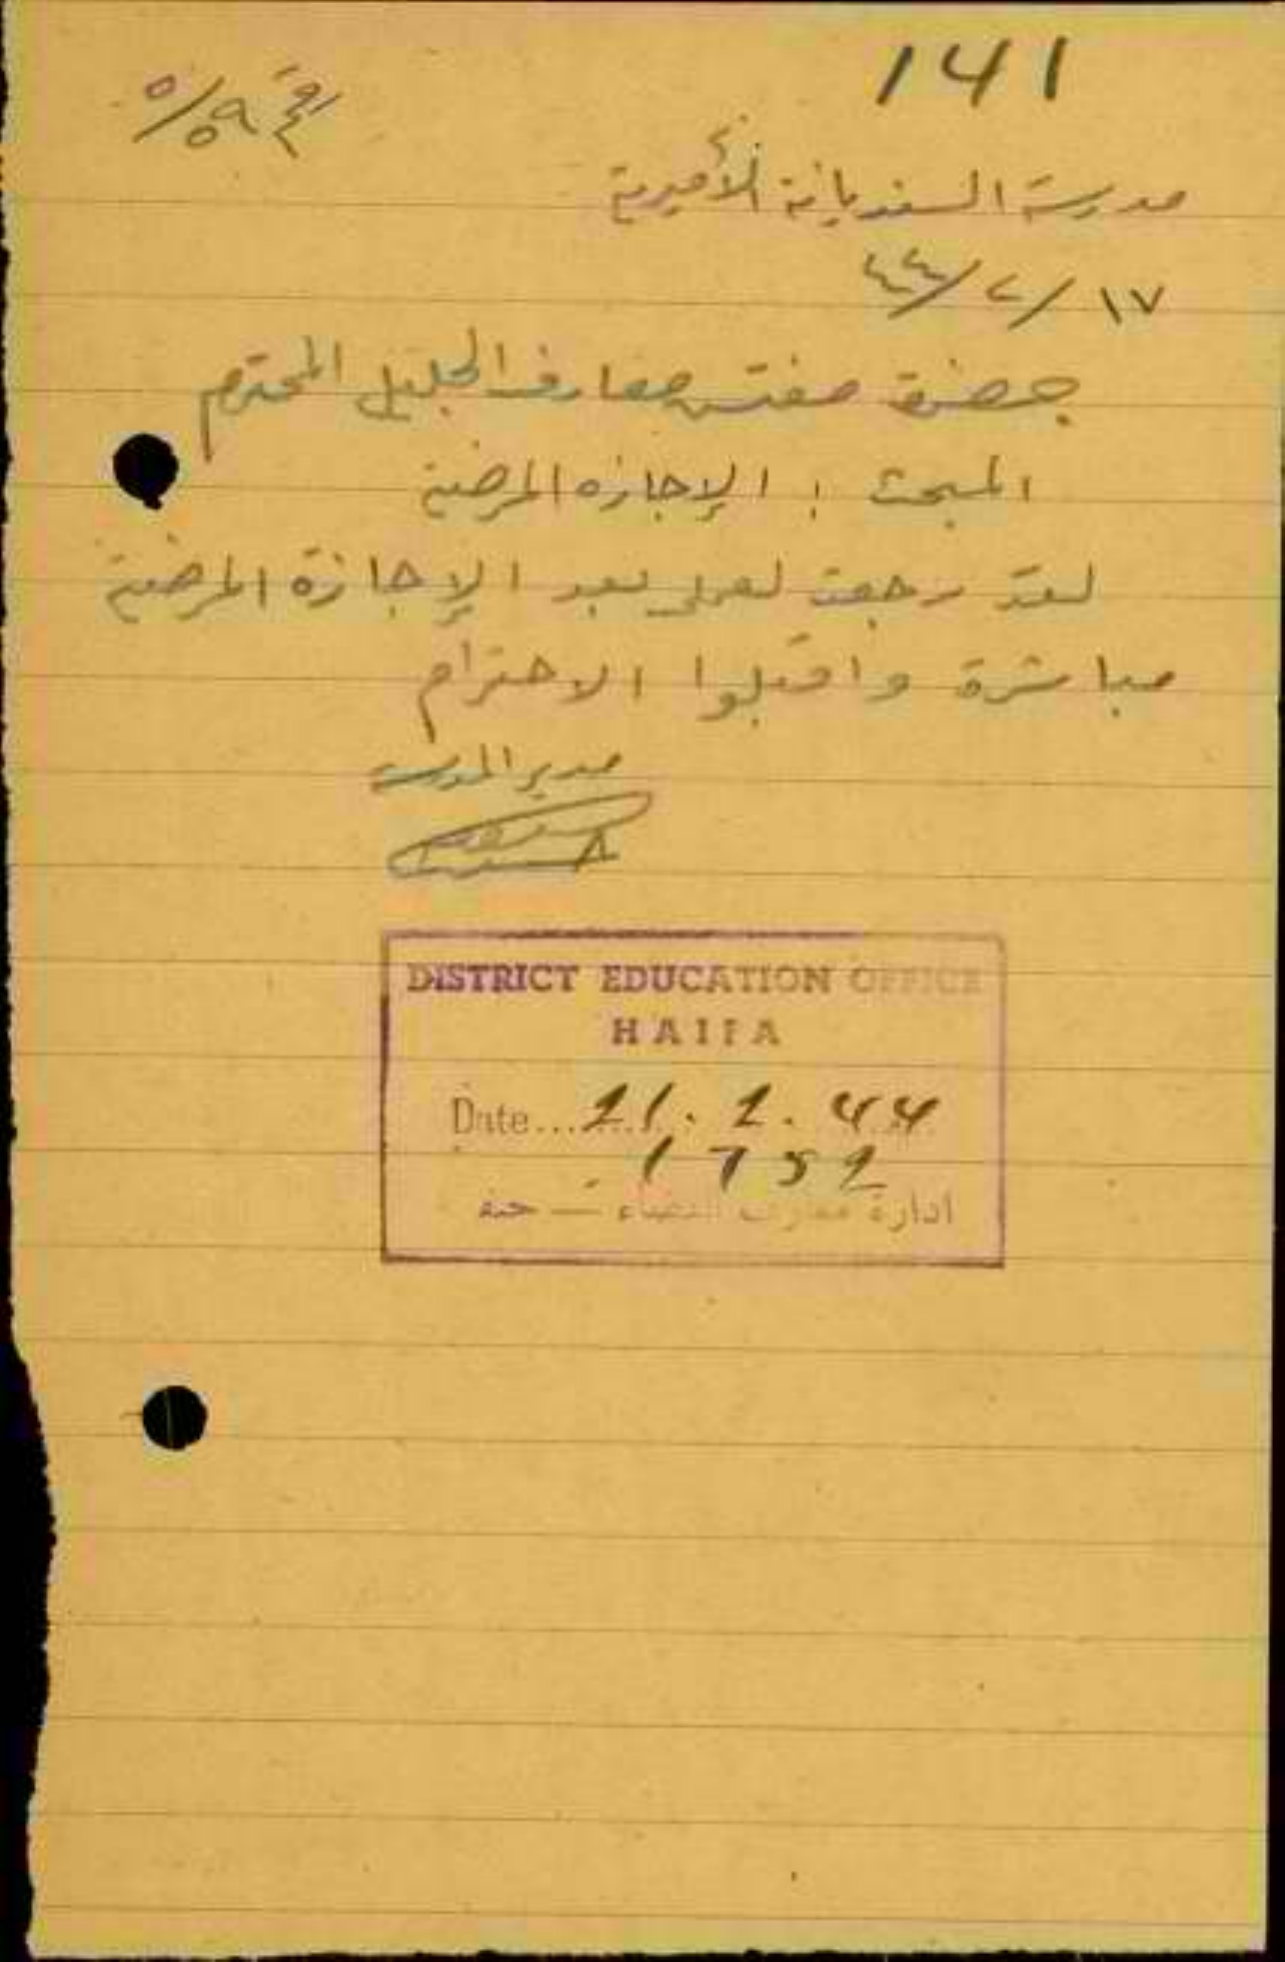 141
رقم ٥٩/٥
مدرسة السنديانة الأميرية
١٧/٢/٤٤
حضرة مفتش معارف الجليل المحترم
المبحث : الإجازه المرضية
لقد رجعت لعملي بعد الإجازة المرضية
مباشرة واقبلوا الاحترام
مدير المدرسة
DISTRICT EDUCATION OFFICE
HAIFA
Date....21.2.44
1752
ادارة معارف القضاء — حيفا